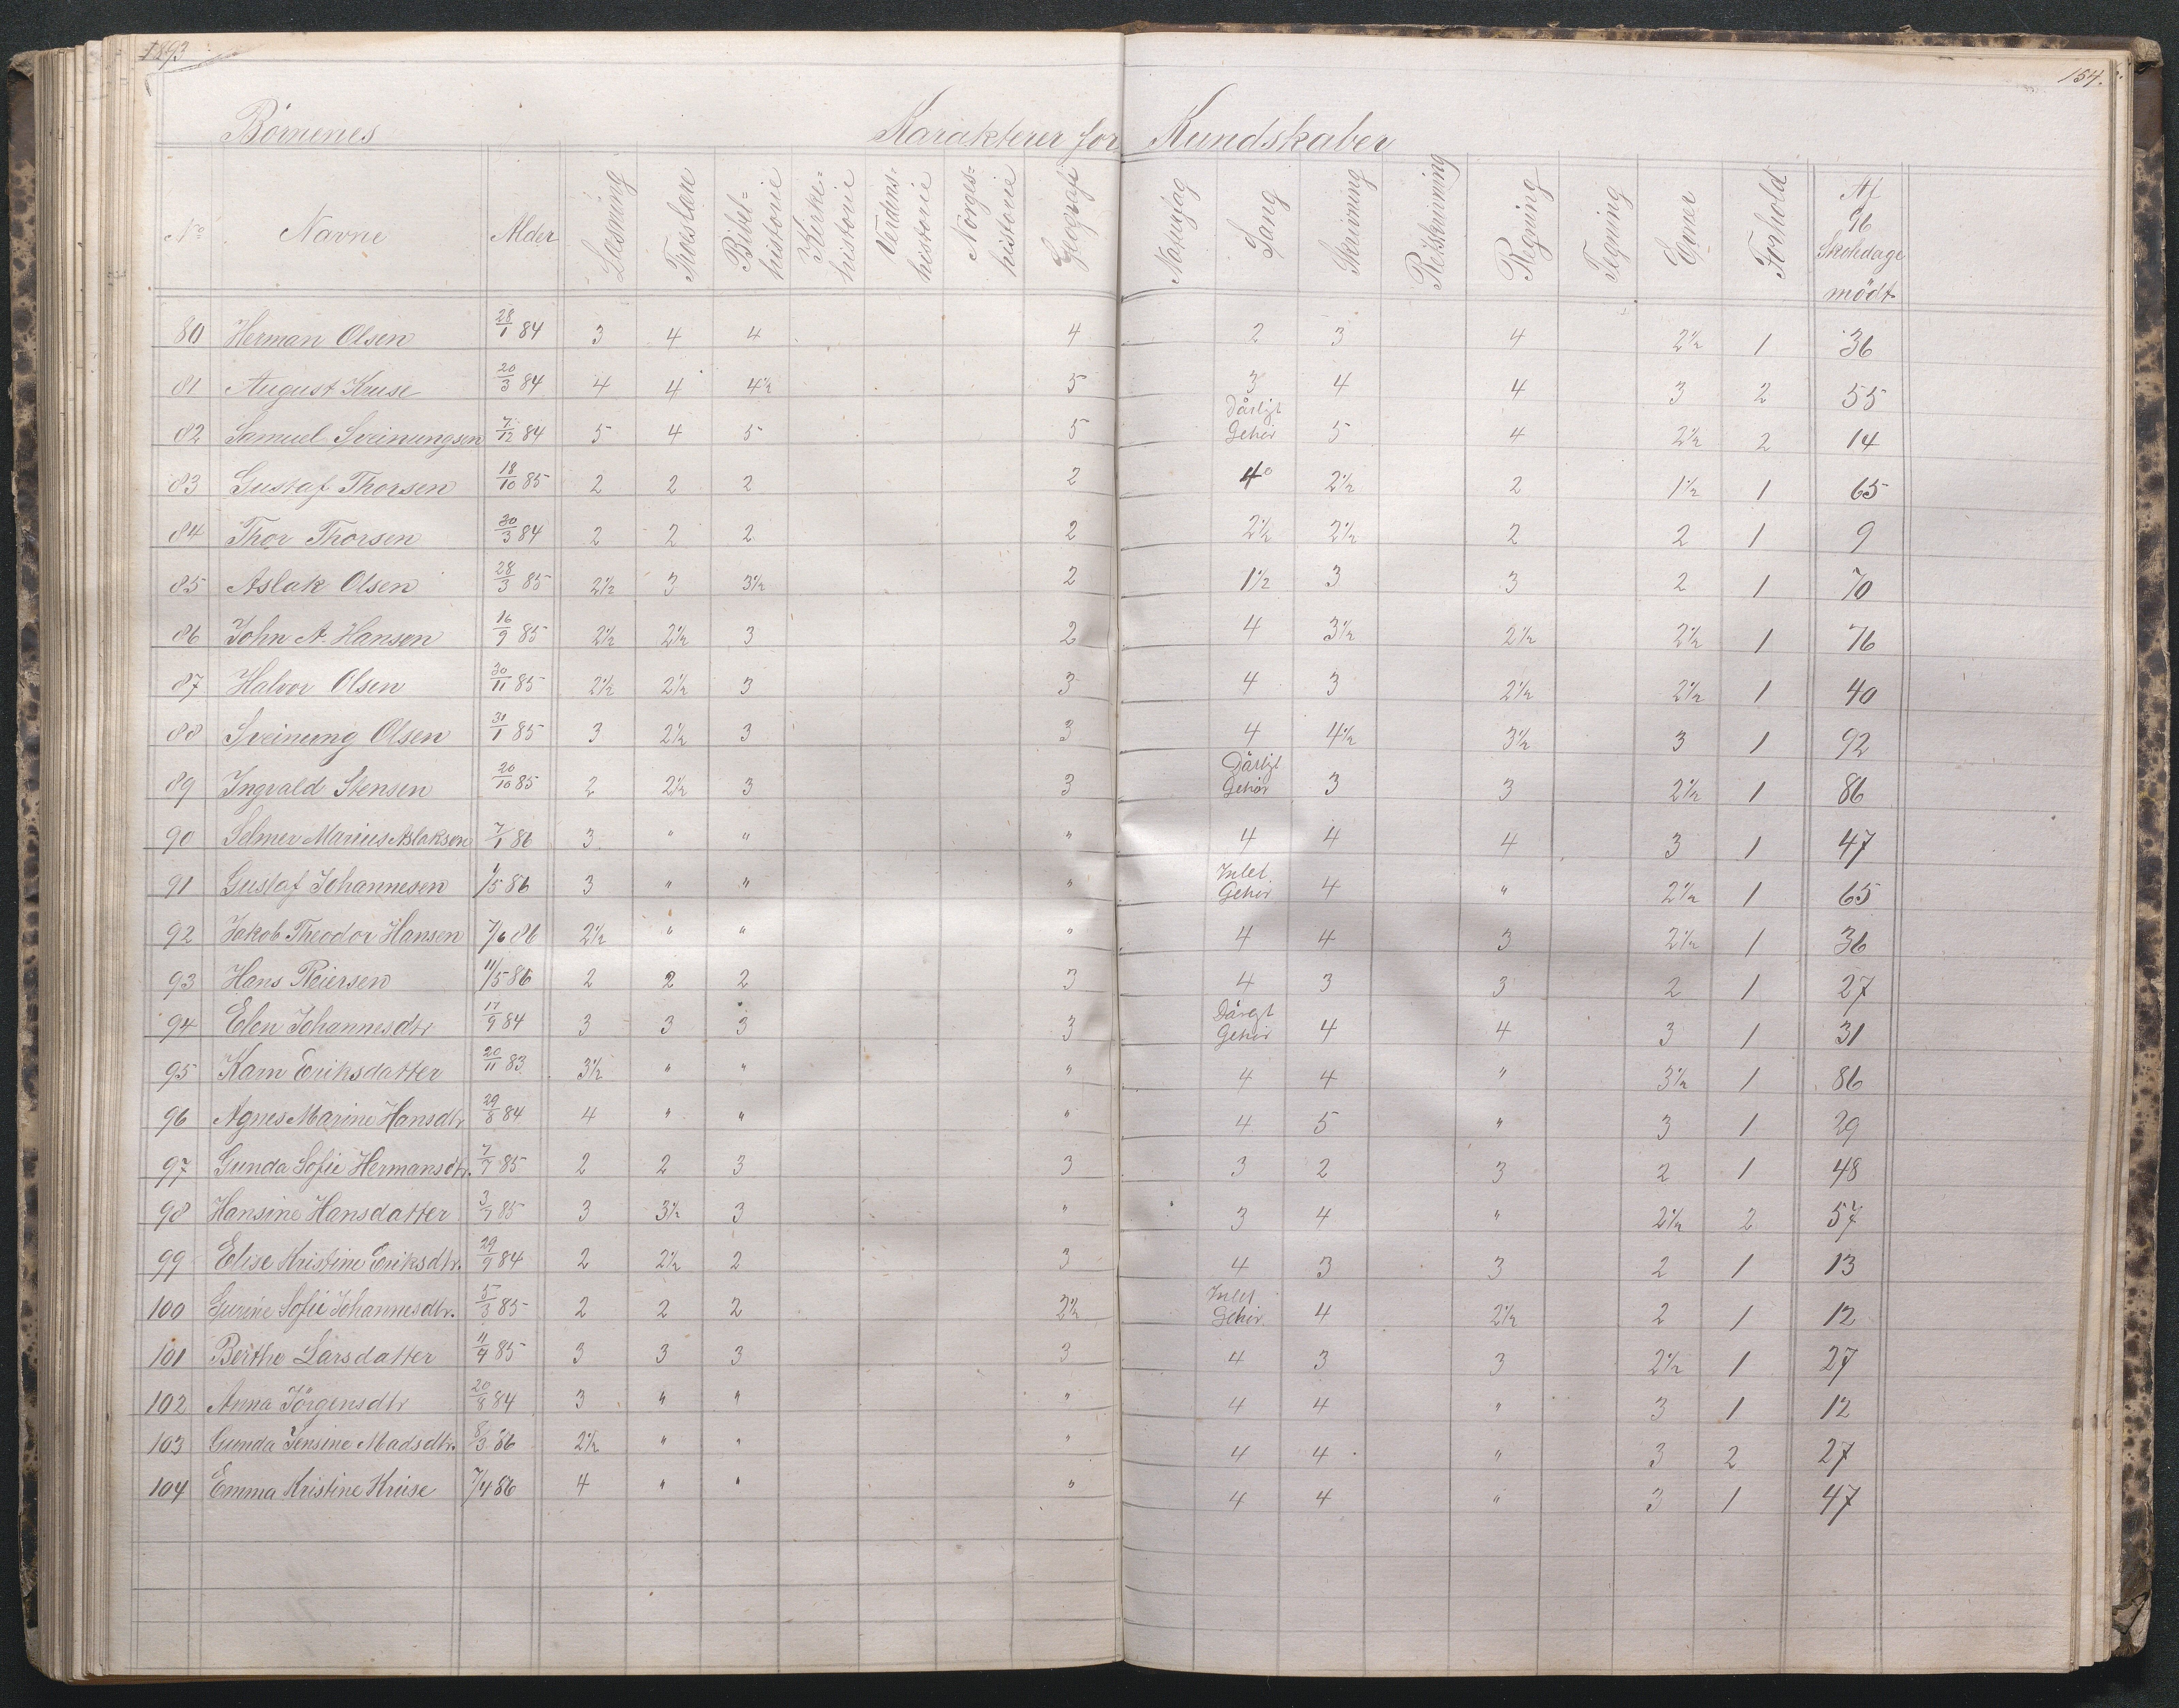 1893
154.
Børnenes Karakterer for Kundskaber
No Navne Alder Læsning Troeslære Bibel=historie Kirke=historie Verdens=historie Norges=historie Geografi Naturfag Sang Skrivning Retskrivning Regning Tegning Evner Forhold Af 96 Skoledage mödt
80 Herman Olsen 28/1 84 3 4 4 4 2 3 4 2½ 1 36
81 August Kruse 20/3 84 4 4 4½ 5 3 4 4 3 2 55
82 Samuel Sveinungsen 7/12 84 5 4 5 5 Dårligt Gehør 5 4 2½ 2 14
83 Gustaf Thorsen 18/10 85 2 2 2 2 4 2½ 2 1½ 1 65
84 Thor Thorsen 30/3 84 2 2 2 2 2½ 2½ 2 2 1 9
85 Aslak Olsen 28/3 85 2½ 3 3½ 2 1½ 3 3 2 1 70
86 John A. Hansen 16/9 85 2½ 2½ 3 2 4 3½ 2½ 2½ 1 76
87 Halvor Olsen 30/11 85 2½ 2½ 3 3 4 3 2½ 2½ 1 40
88 Sveinung Olsen 31/1 85 3 2½ 3 3 4 4½ 3½ 3 1 92
89 Ingvald Stensen 20/10 85 2 2½ 3 3 Dårligt Gehör 3 3 2½ 1 86
90 Selmer Marius Aslaksen 7/1 86 3 " " " 4 4 4 3 1 47
91 Gustaf Johannesen 1/5 86 3 " " " Intet Gehör 4 " 2½ 1 65
92 Jakob Theodor Hansen 7/6 86 2½ " " " 4 4 3 2½ 1 36
93 Hans Reiersen 11/5 86 2 2 2 3 4 3 3 2 1 27
94 Elen Johannesdtr 17/9 84 3 3 3 3 Dårligt Gehör 4 4 3 1 31
95 Karn Eriksdatter 20/11 83 3½ " " " 4 4 " 3½ 1 86
96 Agnes Marine Hansdtr 29/8 84 4 " " " 4 5 " 3 1 29
97 Gunda Sofie Hermansdtr. 7/7 85 2 2 3 3 3 2 3 2 1 48
98 Hansine Hansdatter 3/7 85 3 3½ 3 " 3 4 " 2½ 2 57
99 Elise Kristine Eriksdtr. 29/9 84 2 2½ 2 3 4 3 3 2 1 13
100 Gurine Sofie Johannesdtr. 5/3 85 2 2 2 2½ Intet Gehör. 4 2½ 2 1 12
101 Berthe Larsdatter 11/4 85 3 3 3 3 4 3 3 2½ 1 27
102 Anna Jörgensdtr 20/8 84 3 " " " 4 4 " 3 1 12
103 Gunda Jensine Madsdtr. 8/3 86 2½ " " " 4 4 " 3 2 27
104 Emma Kristine Kruse 7/4 86 4 " " " 4 4 " 3 1 47